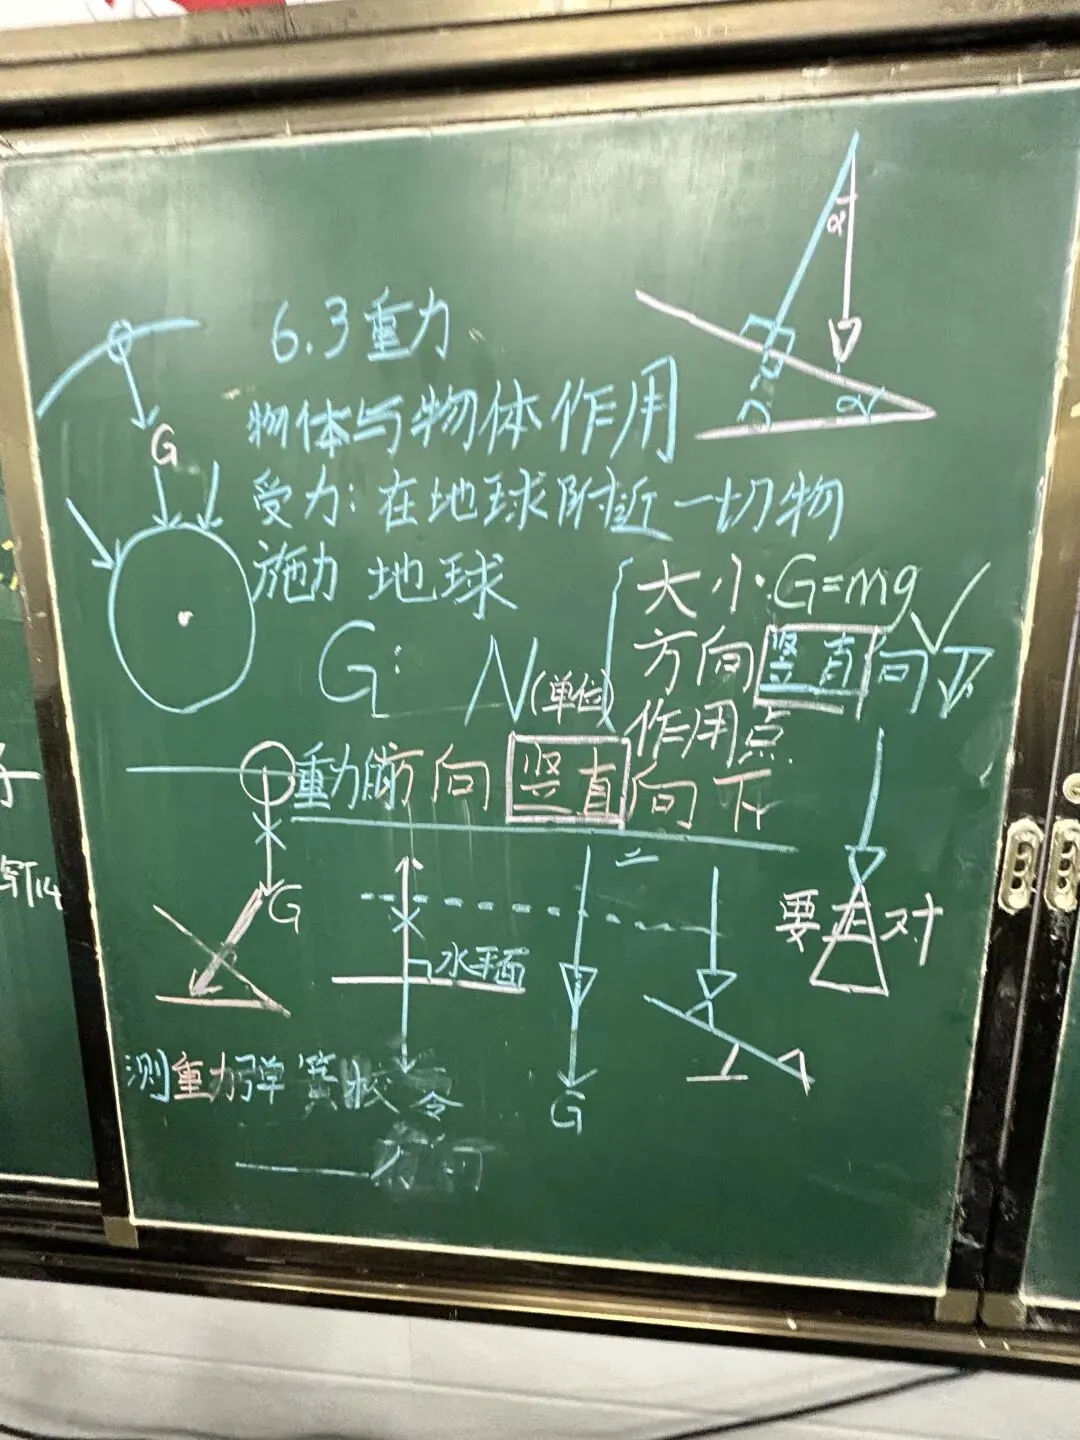 6.3重力
物体与物体作用
受力:在地球附近一切物
施力 地球
G: N(单位)
大小:G=mg
方向竖直向下
作用点
重力的方向竖直向下
G
G
α
α
二
水平面
要正对
G
测重力弹簧校零